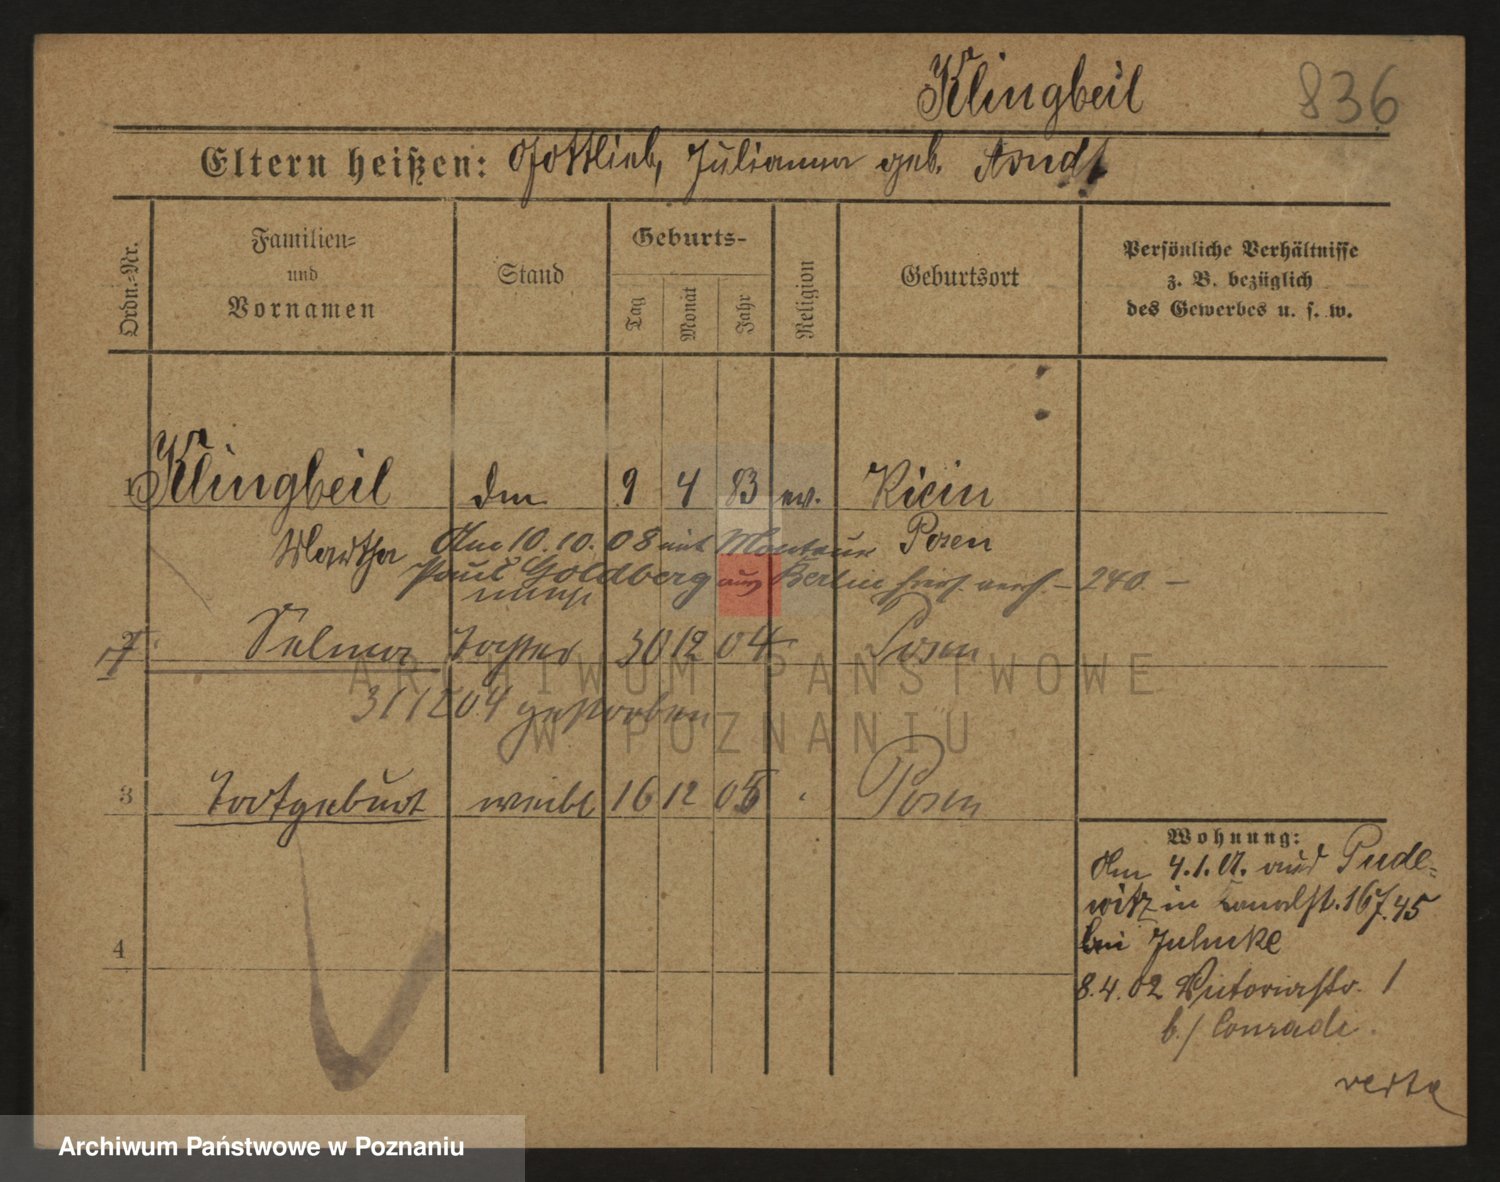 Klingbeil 836
Eltern heißen: Gottlieb, Julianna geb. Arndt
Ordn.-Nr.
Familien-
und
Vornamen
Stand
Geburts-
Tag
Monat
Jahr
Religion
Geburtsort
Persönliche Verhältnisse
z. B. bezüglich
des Gewerbes u. s. w.
1 Klingbeil 9 4 83 ev. Kicin
Martha Am 10.10.08 mit Monteur Posen
Paul Goldberg aus Berlin 240.-
2 Selma Tochter 30 12 04 Posen
31 12 04 gestorben
3 Todtgeburt weibl 16 12 05 Posen
4
Wohnung:
Am 4.1.01. aus Pude-
witz in Kanalst. 16
bei
8.4.02 Victoriastr. 1
b./ Conrade.
verte
ARCHIWUM PAŃSTWOWE
W POZNANIU
Archiwum Państwowe w Poznaniu